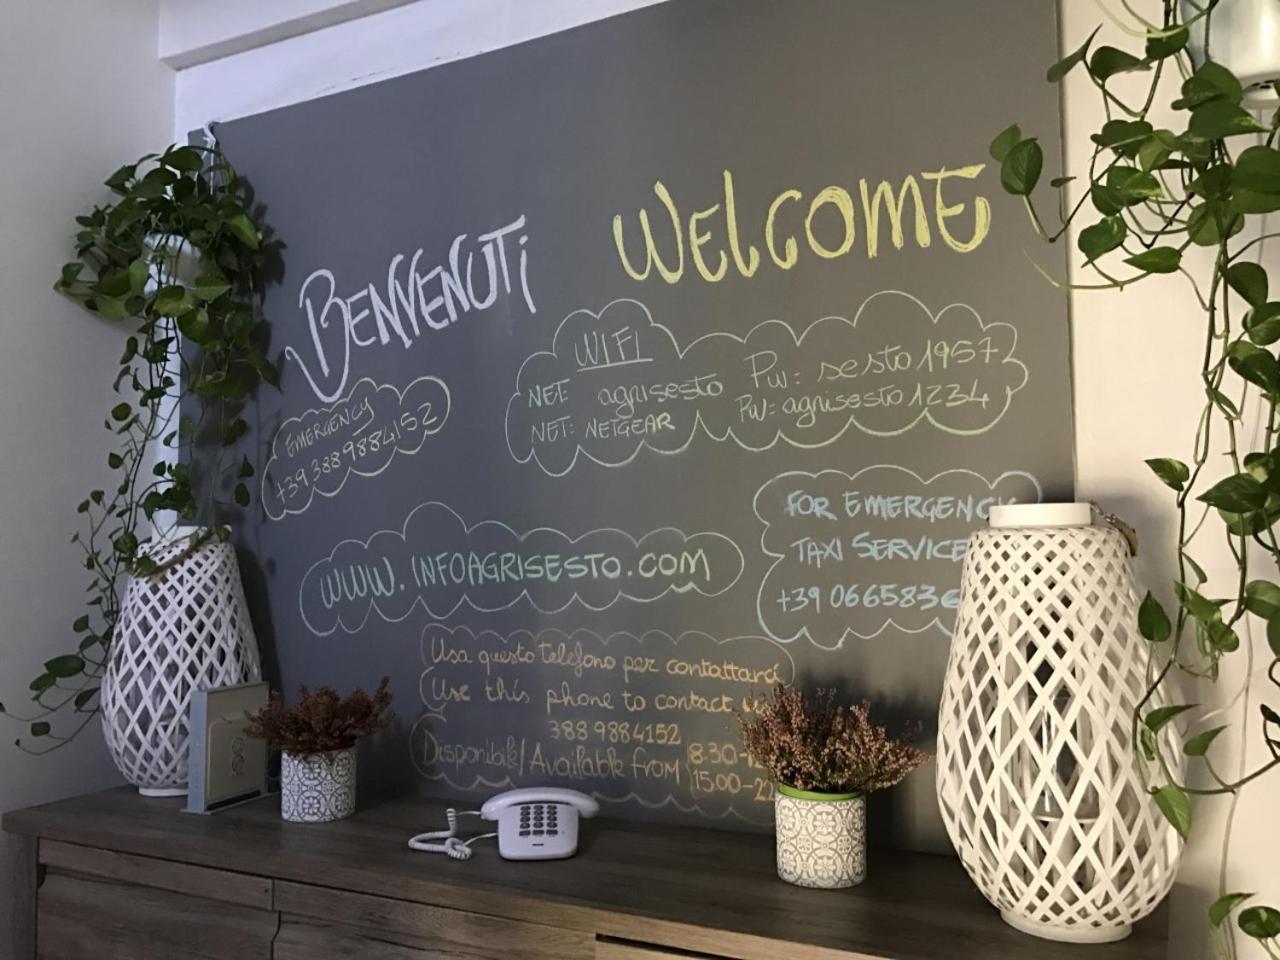 BENVENUTI
WELCOME
WIFI
NET: agrisesto Pw: sesto1957
NET: NETGEAR Pw: agrisesto1234
EMERGENCY
+393889884152
WWW.INFOAGRISESTO.COM
FOR EMERGENCY
TAXI SERVICE
+39 0665836
Usa questo telefono per contattarci
Use this phone to contact
388 9884152
Disponibile/Available from 8:30-
15:00-2